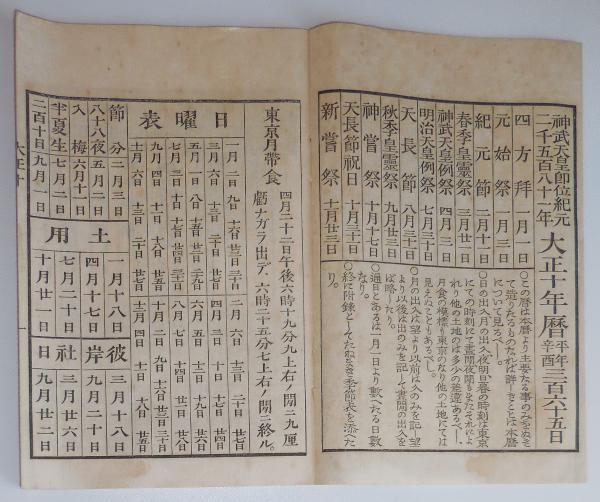 神武天皇即位紀元
二千五百八十一年
大正十年曆
平年
辛酉
三百六十五日
四方拜 一月一日
元始祭 一月三日
紀元節 二月十一日
春季皇靈祭 三月廿一日
神武天皇例祭 四月三日
明治天皇例祭 七月三十日
天長節 八月三十一日
秋季皇靈祭 九月廿三日
神嘗祭 十月十七日
天長節祝日 十月三十一日
新嘗祭 十一月廿三日
○この曆は本曆より主要なる事のみをぬき
て造りたるものなれば詳しきことは本曆
について見るべし。
○日の出入月の出入夜明日暮の時刻は東京
にての時刻にて晝間夜間もまたそれによ
れり他の土地のは多少の差違あるべし、
月食の模樣も東京のなり他の土地にては
見えぬこともあるべし。
○月の出入は望より以前は入のみを記し望
より以後は出のみを記して晝間の出入を
ば略したり。
○通日とあるは一月一日より數へたる日數
なり。
○終に附錄としてたねまき季節表を添へた
り。
東京月帶食
四月二十二日午後六時十九分九上右ノ間ニ九厘
虧ナガラ出デ、六時二十五分七上右ノ間ニ終ル。
日曜表
一月 二日 九日 十六日 廿三日 三十日
二月 六日 十三日 二十日 廿七日
三月 六日 十三日 二十日 廿七日
四月 三日 十日 十七日 廿四日
五月 一日 八日 十五日 廿二日 廿九日
六月 五日 十二日 十九日 廿六日
七月 三日 十日 十七日 廿四日 三十一日
八月 七日 十四日 廿一日 廿八日
九月 四日 十一日 十八日 廿五日
十月 二日 九日 十六日 廿三日 三十日
十一月 六日 十三日 二十日 廿七日
十二月 四日 十一日 十八日 廿五日
節分 二月三日
八十八夜 五月二日
入梅 六月十一日
半夏生 七月二日
二百十日 九月一日
土用
一月十八日
四月十七日
七月二十日
十月廿一日
彼岸
三月十八日
九月二十日
社日
三月廿六日
九月廿二日
大正十
一